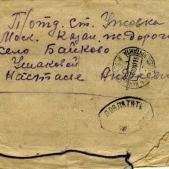 П/отд. ст. Ужовка
Моск. Казан. ж. дороги
село Байково
Ушаковой
Настасие Андреевн
ДОПЛАТИТЬ